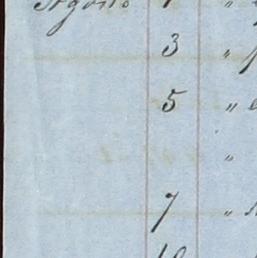 Agosto 1 "
3 "
5 "
"
7 "
10